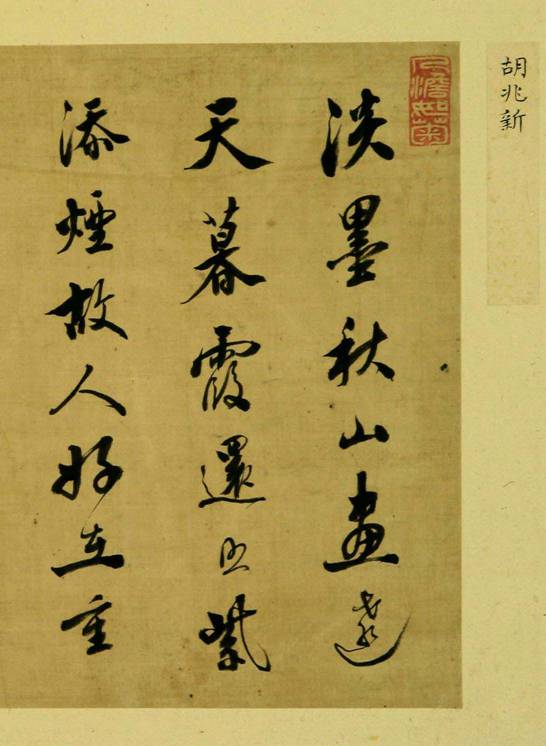 胡兆新
澹如菊
淡墨秋山畫遠
天暮霞還照紫
添煙故人好在重